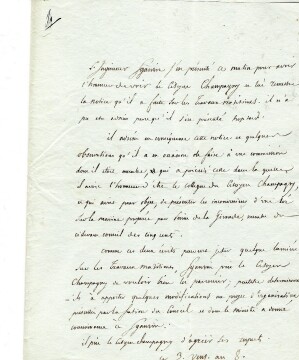 L'Ingénieur Sganzin s'est présenté ce matin pour avoir
l'honneur de voir le Citoyen Champagny et lui remettre
la notice qu'il a faite sur les Travaux maritimes. il n'a
pas été admis parcequ'il s'est présenté trop tard.
il adresse en conséquence cette notice et quelques
observations qu'il a eu occasion de faire, à une commission
dont il était membre, et qui a précédé celle dans laquelle
j'avais l'honneur d'être le collègue du Citoyen Champagny,
et qui avait pour objet de présenter les inconvéniens d'une loi
sur la marine proposée par Boissier de la Gironde, membre du
ci devant conseil des cinq cents.
comme ces deux écrits peuvent jetter quelque lumière
sur les Travaux maritimes, Sganzin prie le Citoyen
Champagny de vouloir bien les parcourir; peut être détermineront
ils à apporter quelques modifications au projet d'organisation
présenté par la section du conseil et dont le ministre a donné
connaissance à Sganzin.
il prie le Citoyen Champagny d'agréer ses respects
le 3. vent. an 8.